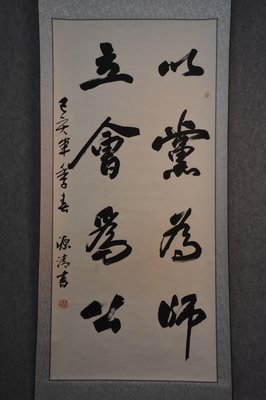 以黨為師
立會為公
己亥年季春 源清書